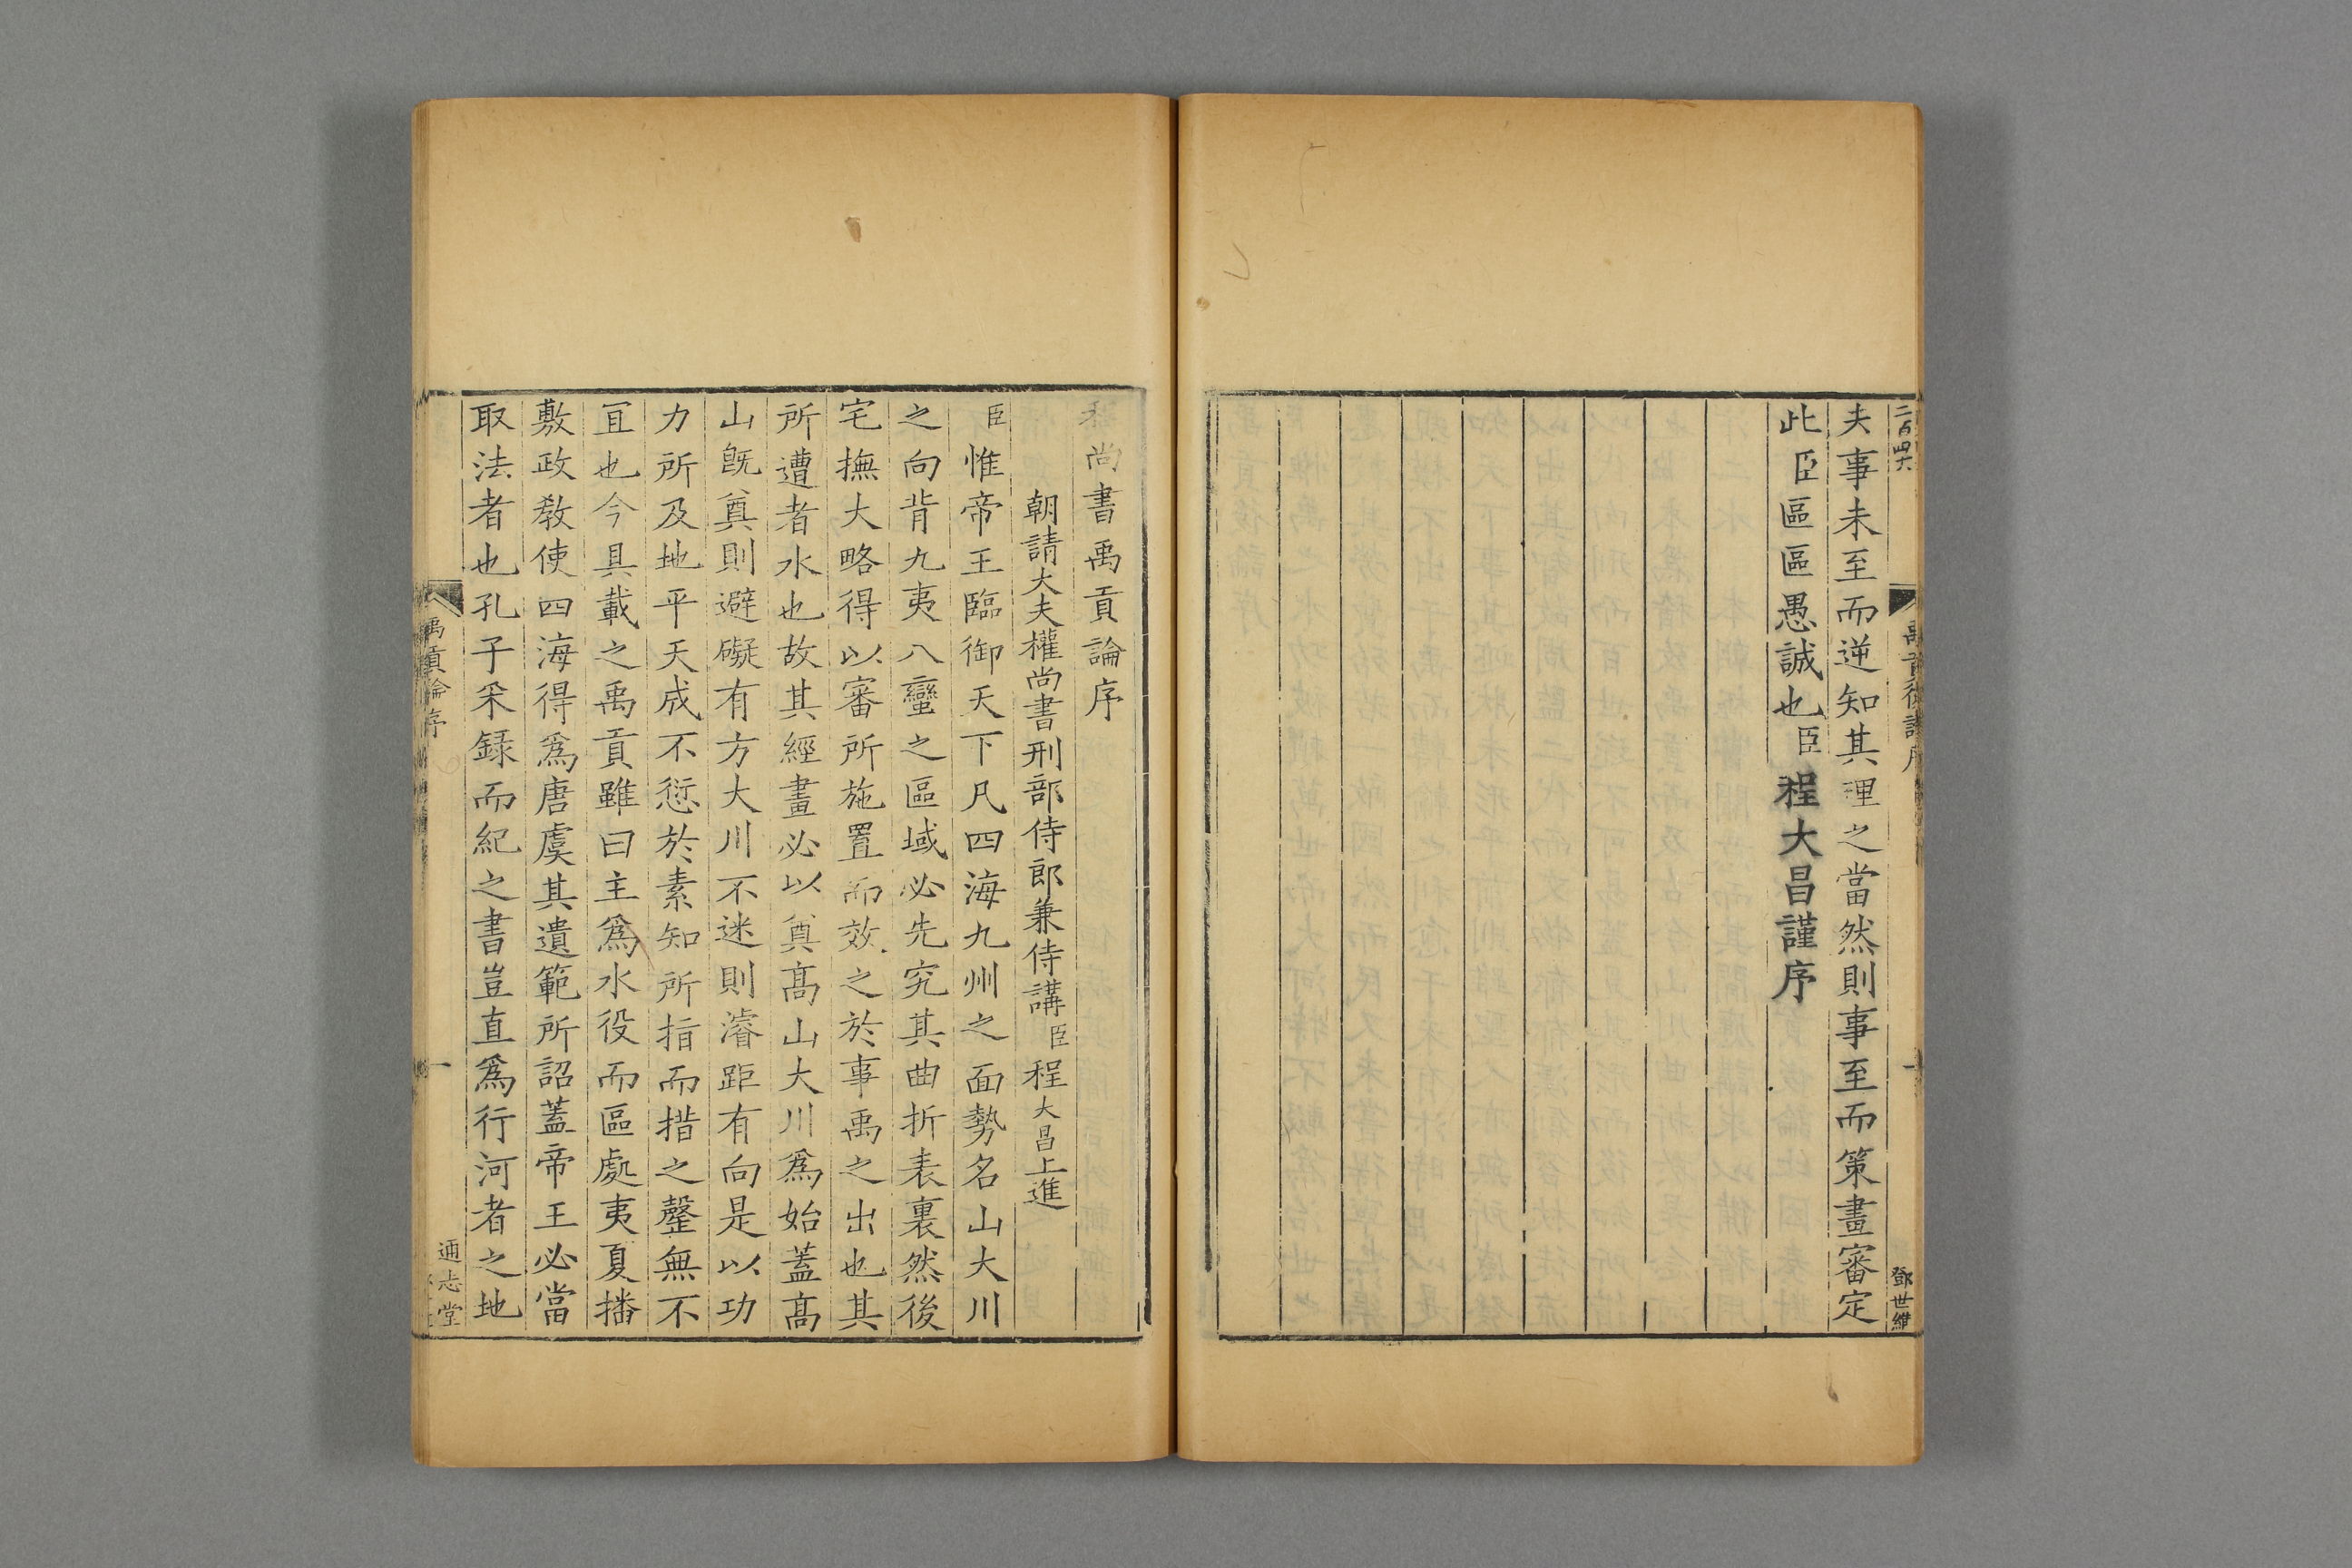 二百四六
禹貢後論序
鄧世維
夫事未至而逆知其理之當然則事至而策畫審定
此臣區區愚誠也臣程大昌謹序
尚書禹貢論序
朝請大夫權尚書刑部侍郎兼侍講臣程大昌上進
臣惟帝王臨御天下凡四海九州之面勢名山大川
之向背九夷八蠻之區域必先究其曲折表裏然後
宅撫大略得以審所施置而效之於事禹之出也其
所遭者水也故其經畫必以奠髙山大川爲始蓋髙
山旣奠則避礙有方大川不迷則濬距有向是以功
力所及地平天成不愆於素知所指而措之罄無不
宜也今具載之禹貢雖曰主爲水役而區處夷夏播
敷政教使四海得爲唐虞其遺範所詔蓋帝王必當
取法者也孔子采録而紀之書豈直爲行河者之地
禹貢論序
一
通志堂